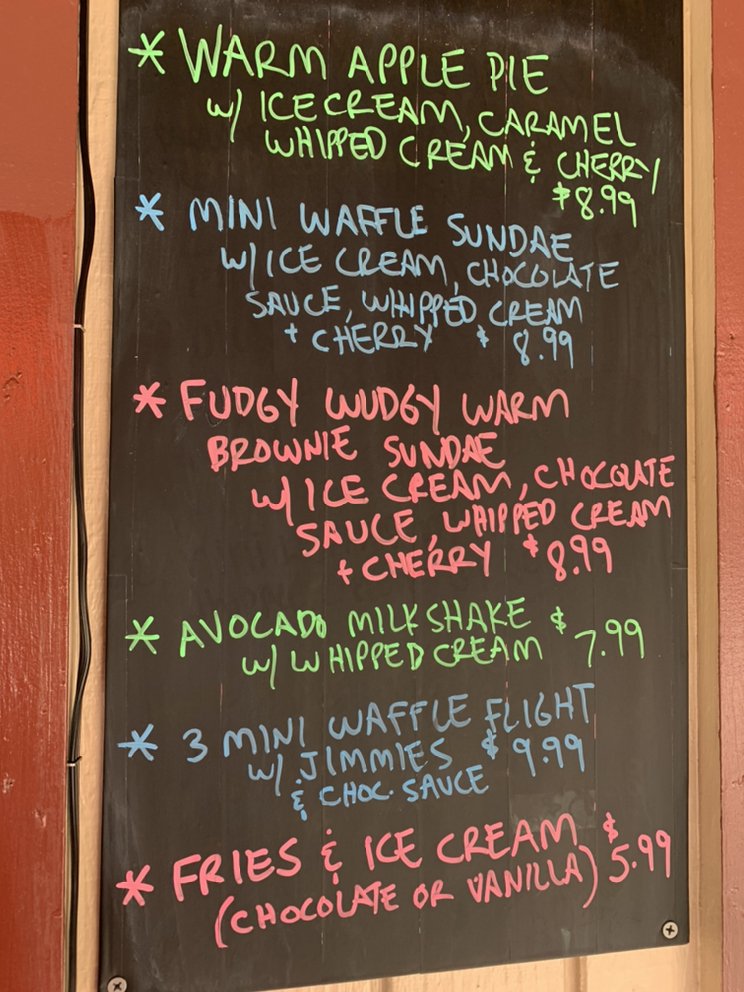 * WARM APPLE PIE
w/ ICE CREAM, CARAMEL
WHIPPED CREAM & CHERRY
$8.99
* MINI WAFFLE SUNDAE
w/ ICE CREAM, CHOCOLATE
SAUCE, WHIPPED CREAM
+ CHERRY $8.99
* FUDGY WUDGY WARM
BROWNIE SUNDAE
w/ ICE CREAM, CHOCOLATE
SAUCE, WHIPPED CREAM
+ CHERRY $8.99
* AVOCADO MILKSHAKE $7.99
w/ WHIPPED CREAM
* 3 MINI WAFFLE FLIGHT
w/ JIMMIES $9.99
& CHOC. SAUCE
* FRIES & ICE CREAM $5.99
(CHOCOLATE OR VANILLA)